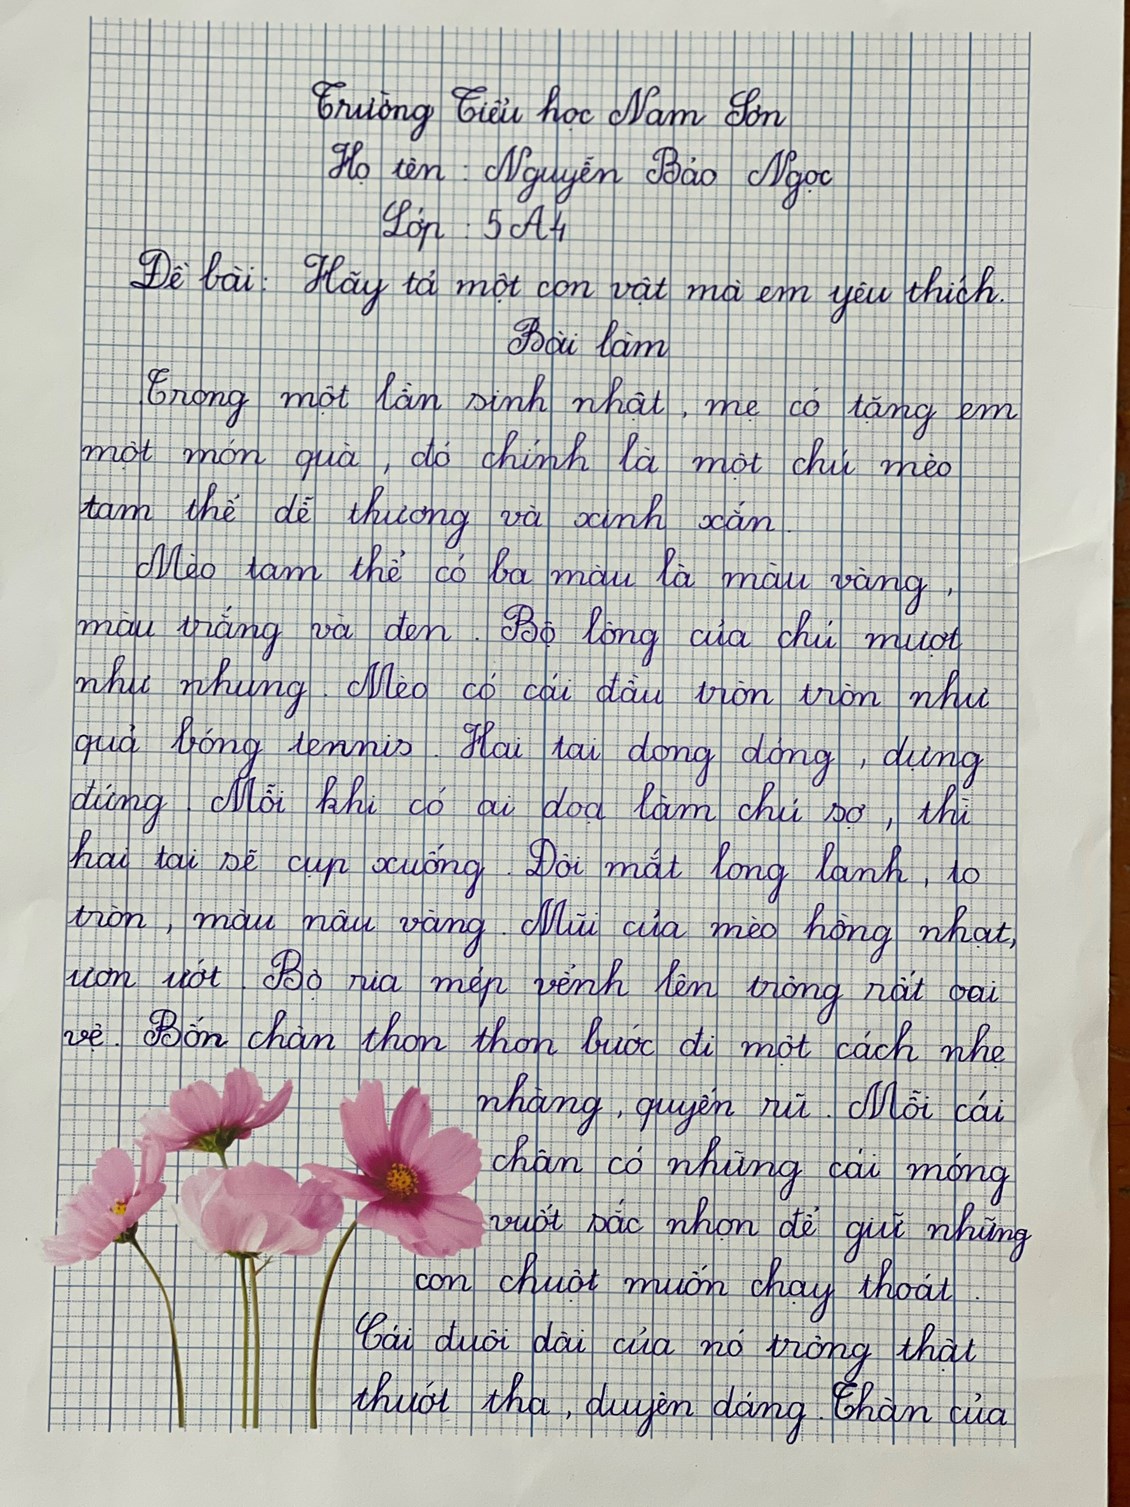 Trường Tiểu học Nam Sơn
Họ tên : Nguyễn Bảo Ngọc
Lớp : 5A4
Đề bài: Hãy tả một con vật mà em yêu thích.
Bài làm
Trong một lần sinh nhật, mẹ có tặng em
một món quà, đó chính là một chú mèo
tam thể dễ thương và xinh xắn.
Mèo tam thể có ba màu là màu vàng,
màu trắng và đen. Bộ lông của chú mượt
như nhung. Mèo có cái đầu tròn tròn như
quả bóng tennis. Hai tai dong dỏng, dựng
đứng. Mỗi khi có ai doạ làm chú sợ, thì
hai tai sẽ cụp xuống. Đôi mắt long lanh, to
tròn, màu nâu vàng. Mũi của mèo hồng nhạt,
ươn ướt. Bộ ria mép vểnh lên trông rất oai
vệ. Bốn chân thon thon bước đi một cách nhẹ
nhàng, quyến rũ. Mỗi cái
chân có những cái móng
vuốt sắc nhọn để giữ những
con chuột muốn chạy thoát.
Cái đuôi dài của nó trông thật
thướt tha, duyên dáng. Thân của